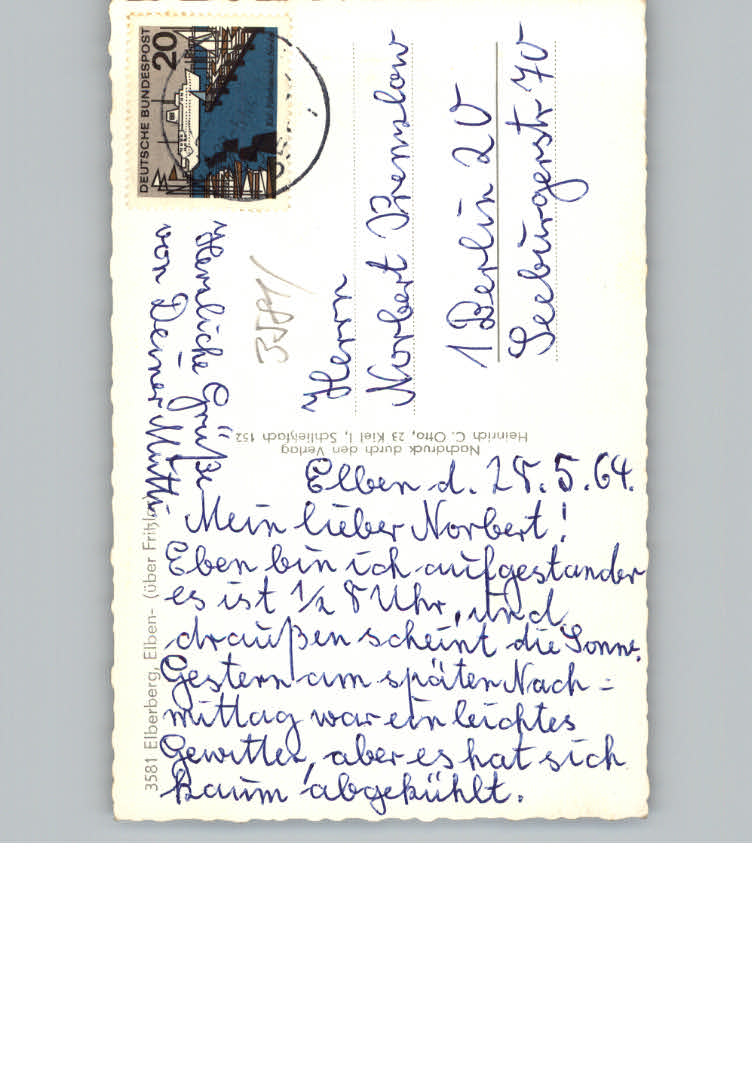 Elben d. 28.5.64.
Mein lieber Norbert!
Eben bin ich aufgestanden
es ist 1/2 8 Uhr, und
draußen scheint die Sonne.
Gestern am späten Nach=
mittag war ein leichtes
Gewitter, aber es hat sich
kaum abgekühlt.
Herzliche Grüße
von Deiner Mutti.
Herrn
Norbert
1 Berlin 20
Seeburgerstr 70
3581/
DEUTSCHE BUNDESPOST
20
3581 Elberberg, Elben- (über Fritzlar)
Nachdruck durch den Verlag
Heinrich C. Otto, 23 Kiel 1, Schließfach 152